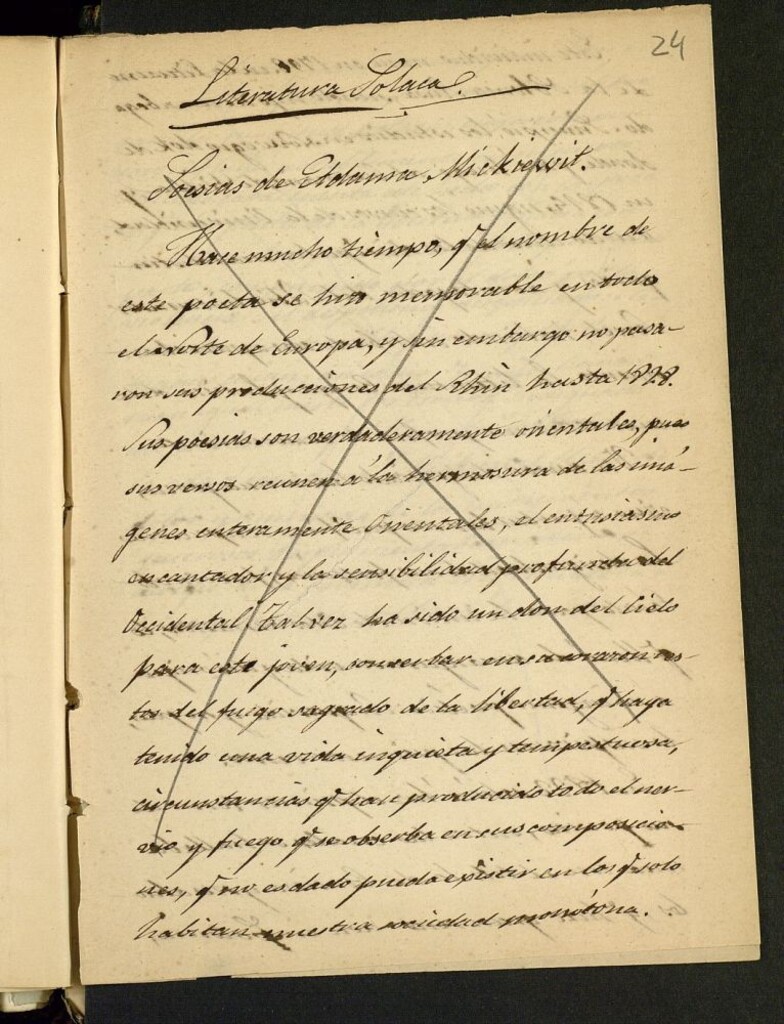 24
Literatura Polaca.
Poesias de Adama Mickiewit.
Hace mucho tiempo, q̃ el nombre de
este poeta se hizo memorable en todo
el Norte de Europa, y sin embargo no pasa-
ron sus producciones del Rhin hasta 1828.
Sus poesias son verdaderamente orientales, pues
sus versos reunen á la hermosura de las imá-
genes enteramente Orientales, el entusiasmo
encantador y la sensibilidad profunda del
Occidental. Tal vez ha sido un don del Cielo
para este joven, conserbar en su corazon res-
tos del fuego sagrado de la libertad, q̃ haya
tenido una vida inquieta y tempestuosa,
circunstancias q̃ han producido todo el ner-
vio y fuego q̃ se obserba en sus composicio-
nes, q̃ no es dado pueda existir en los q̃ solo
habitan nuestra sociedad monótona.